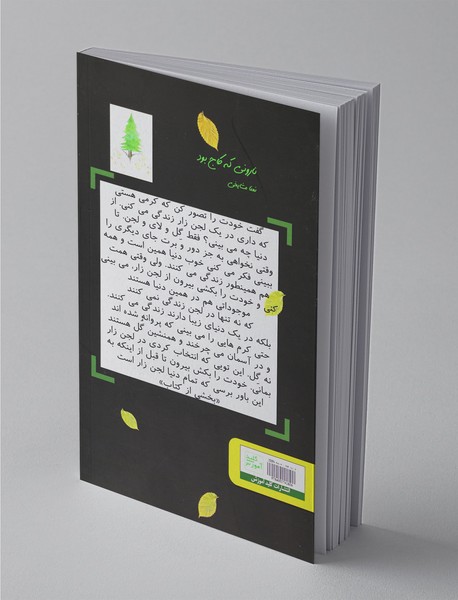 نارونی که کاج بود
گفت خودت را تصور کن که کرمی هستی
که داری در یک لجن زار زندگی می کنی. از
دنیا چه می بینی؟ فقط گل و لای و لجن. تا
وقتی نخواهی به جز دور و برت جای دیگری را
ببینی فکر می کنی خوب دنیا همین است و همه
هم همینطور زندگی می کنند. ولی وقتی همت
کنی و خودت را بکشی بیرون از لجن زار، می بینی
موجوداتی هم در همین دنیا هستند
که نه تنها در لجن زندگی نمی کنند
بلکه در یک دنیای زیبا دارند زندگی می کنند.
حتی کرم هایی را می بینی که پروانه شده اند
و در آسمان می چرخند و همنشین گل هستند
نه گل. این تویی که انتخاب کردی در لجن زار
بمانی. خودت را بکش بیرون تا قبل از اینکه به
این باور برسی که تمام دنیا لجن زار است
«بخشی از کتاب»
کلید
آموزش
انتشارات کلید آموزش